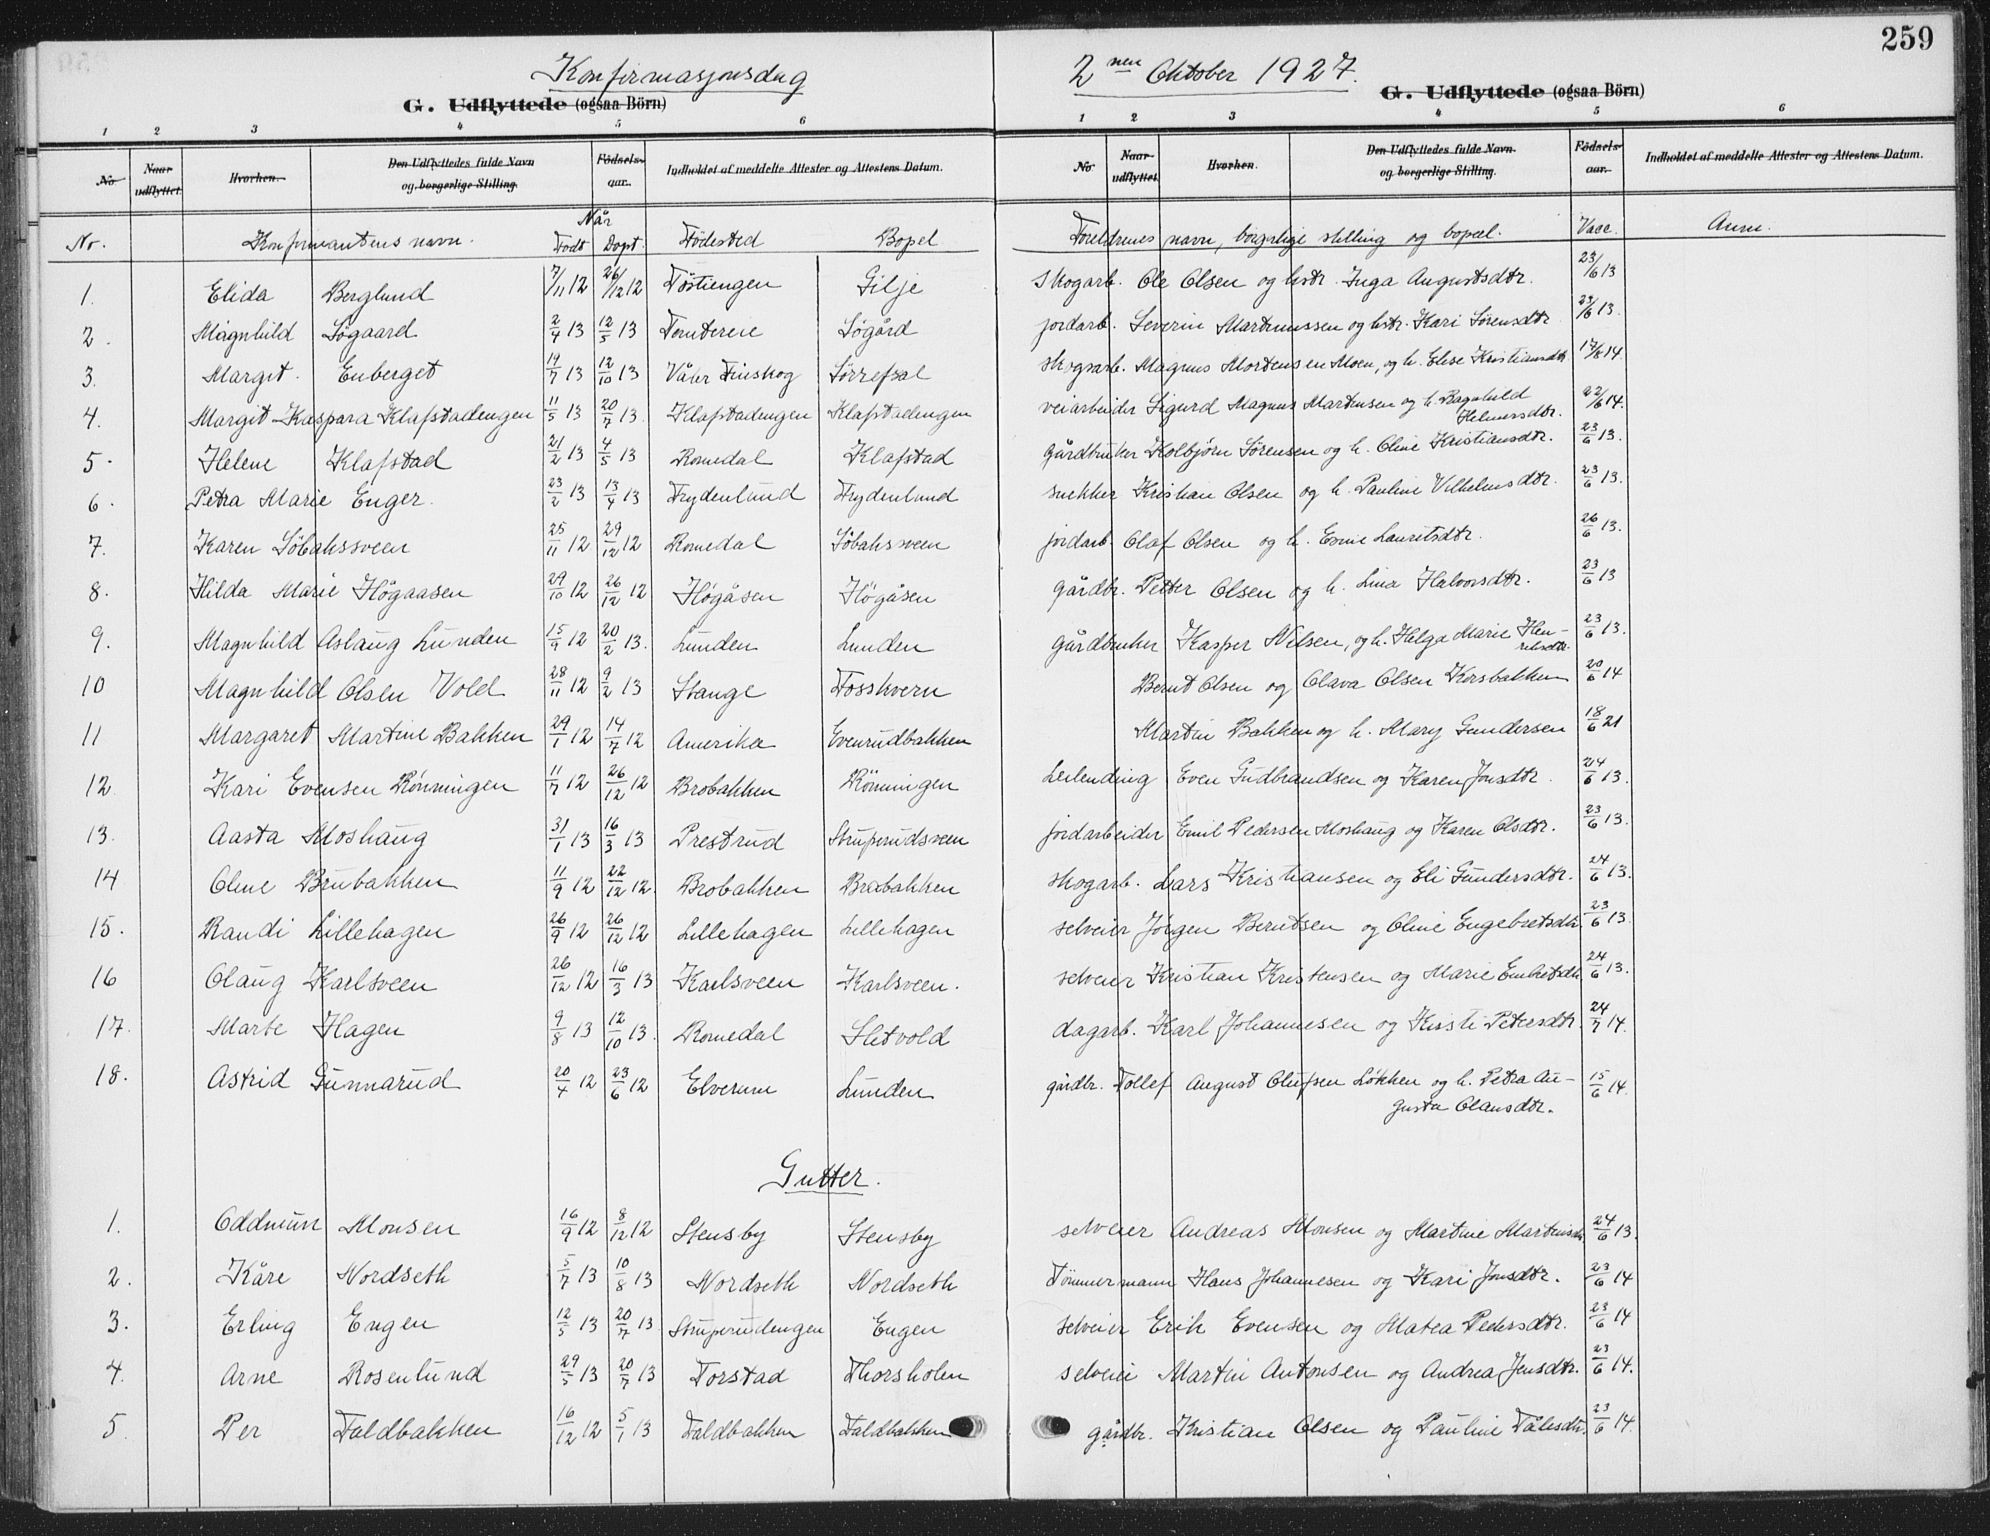 259
Konfirmasjonsdag 2nen Oktober 1927.
G. Udflyttede (ogsaa Börn) G. Udflyttede (ogsaa Börn)
1 2 3 4 5 6 1 2 3 4 5 6
No Naar udflyttet. Hvorhen. Den Udflyttedes fulde Navn og borgerlige Stilling Födsels-aar. Indholdet af meddelte Attester og Attestens Datum. No Naar udflyttet Hvorhen. Den Udflyttedes fulde Navn og borgerlige Stilling. Födsels-aar. Indholdet af meddelte Attester og Attestens Datum.
Nr. Konfirmantens navn. Når Født Døpt. Fødested Bopel Foreldrenes navn, borgerlige stilling og bopæl. Vacc. Anm.
1. Elida Berglund 7/11 12 26/12 12 Gilje Skogarb. Ole Olsen og hstr. Inga Augustsdtr. 23/6 13
2. Magnhild Søgaard 2/4 13 12/5 13 Søgård jordarb. Severin Martinussen og hstr. Kari Sørensdtr 23/6 13.
3. Margit Enberget 19/7 13 12/10 13 Våler Finskog skogsarb. Magnus Mortensen Moen, og h. Elise Kristiansdtr. 14.
4. Margit Kaspara Klafstadengen 11/5 13 20/7 13. Klafstadengen Klafstadengen veiarbeider Sigurd Magnus Martinsen og h. Ragnhild Helmersdtr. 22/6 14.
5. Helene Klafstad 21/2 13 4/5 13 Romedal Klafstad gårdbruker Kolbjørn Sørensen og h. Oline Kristiansdtr. 23/6 13.
6. Petra Marie Enger. 23/2 13 13/4 13 Frydenlund Frydenlund snekker Kristian Olsen og h. Pauline Vilhelmsdtr. 23/6 13.
7. Karen Søbakssveen 25/11 12 29/12 12 Romedal Søbaksveen jordarb. Olaf Olsen og h. Lauritsdtr. 26/6 13.
8. Hilda Marie Høgaasen 29/10 12 26/12 12 Høgåsen Høgåsen gårdbr. Petter Olsen og h. Lina Halvorsdtr. 23/6 13
9. Magnhild Aslaug Lunden 15/9 12 20/2 13. Lunden Lunden gårdbruker Kasper Nilsen, og h. Helga Marie Hen-riksdtr. 23/6 13.
10 Magnhild Olsen Vold 28/11 12 9/2 13 Stange Fosskvern Bernt Olsen og Olava Olsen Korsbakken 20/6 14
11 Margaret Martine Bakken 29/1 12 14/7 12 Amerika Evenrudbakken Martin Bakken og h. Mary Gundersen 18/6 21
12. Kari Evensen Rønningen 11/7 12 26/12 12 Brobakken Rönningen Leilending Even Gudbrandsen og Karen Jonsdtr. 24/6 13.
13. Aasta Moshaug 31/1 13 16/3 13 Prestrud Struperudsveen jordarbeider Emil Pedersen Moshaug og Karen Olsdtr. 23/6 13.
14 Oline Brubakken 11/9 12 22/12 12. Brobakken Brobakken skogarb. Lars Kristiansen og Eli Gundersdtr. 24/6 13.
15. Randi Lillehagen 26/9 12 26/12 12 Lillehagen Lillehagen selveier Jörgen Berntsen og Oline Engebretsdtr. 23/6 13.
16 Olaug Karlsveen 26/12 12 16/3 13 Karlsveen Karlsveen. selveier Kristian Kristensen og Marie Embretsdtr. 24/6 13.
17. Marte Hagen 9/8 13 12/10 13. Romedal Slitvold dagarb. Karl Johannesen og Kirsti Petersdtr. 24/7 14.
18. Astrid Gunnarud 20/4 12 23/6 12 Elverum Lunden gårdbr. Tollef August Olufsen Løkken og h. Petra Au-gusta Olausdtr. 15/6 14.
Gutter.
1. Oddmun Monsen 16/9 12 8/12 12 Stensby Stensby selveier Andreas Monsen og Martine Martinsdtr 24/6 13.
2. Kåre Nordseth 5/7 13 10/8 13 Nordseth Nordseth Tömmermann Hans Johannesen og Kari Jonsdtr. 23/6 14
3. Erling Engen 12/5 13 20/7 13 Struperudengen Engen selveier Erik Evensen og Matea Pedersdtr. 23/6 14
4. Arne Rosenlund 29/5 13 20/7 13 Torstad Thorsholen selveier Martin Antonsen og Andrea Jensdtr. 23/6 14.
5. Per Faldbakken 16/12 12 5/1 13 Faldbakken Faldbakken gårdbr. Kristian Olsen og Pauline Pålsdtr. 23/6 14.